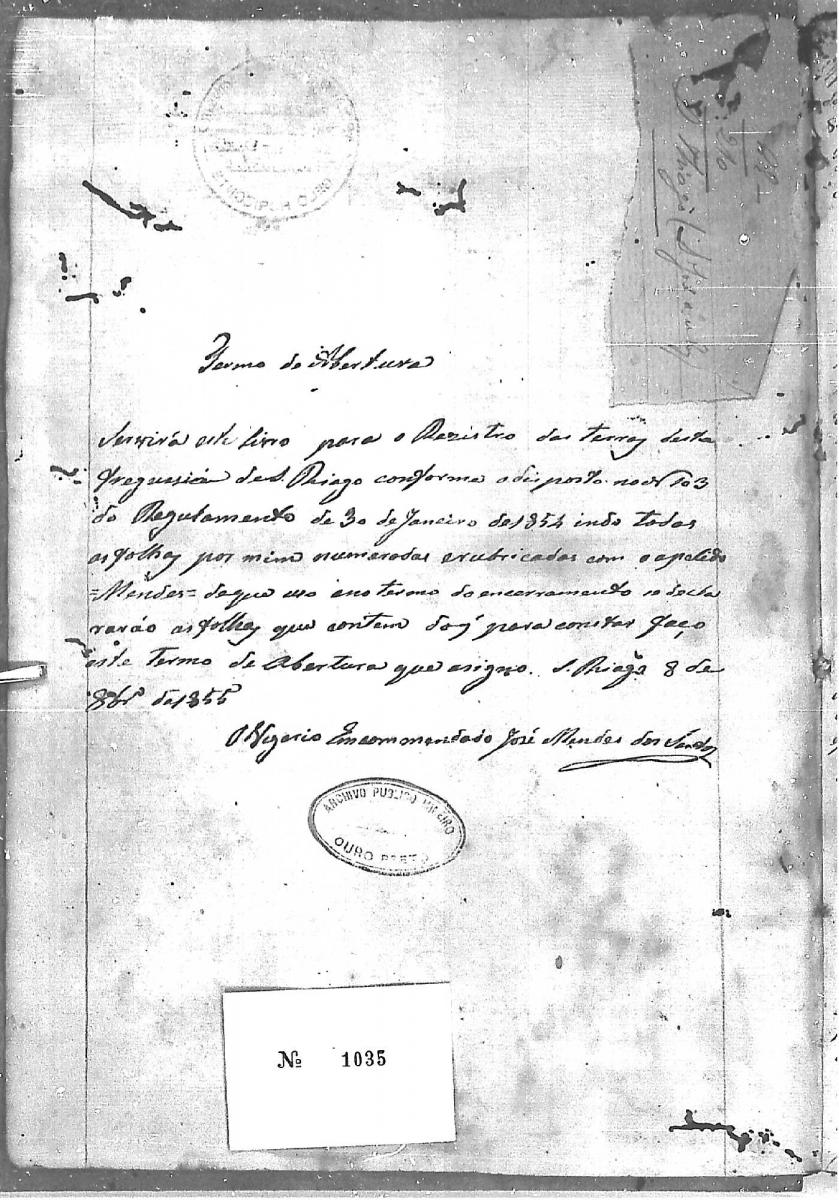 Termo de Abertura
Servirá este Livro para o Rezistro das terras desta
Freguesia de S. Thiago conforme o disposto no art 103
do Regulamento de 30 de Janeiro de 1854 indo todas
as folhas por mim numeradas e rubricadas com o apelido
=Mendes= de que uso e no termo do encerramento se decla
rarão as folhas que contem do q' para constar faço
este termo de Abertura que asigno. S. Thiago 8 de
8br.º de 1855
O Vigario Encommendado José Mendes dos Santos
ARCHIVO PUBLICO MINEIRO
OURO PRETO
Nº 1035